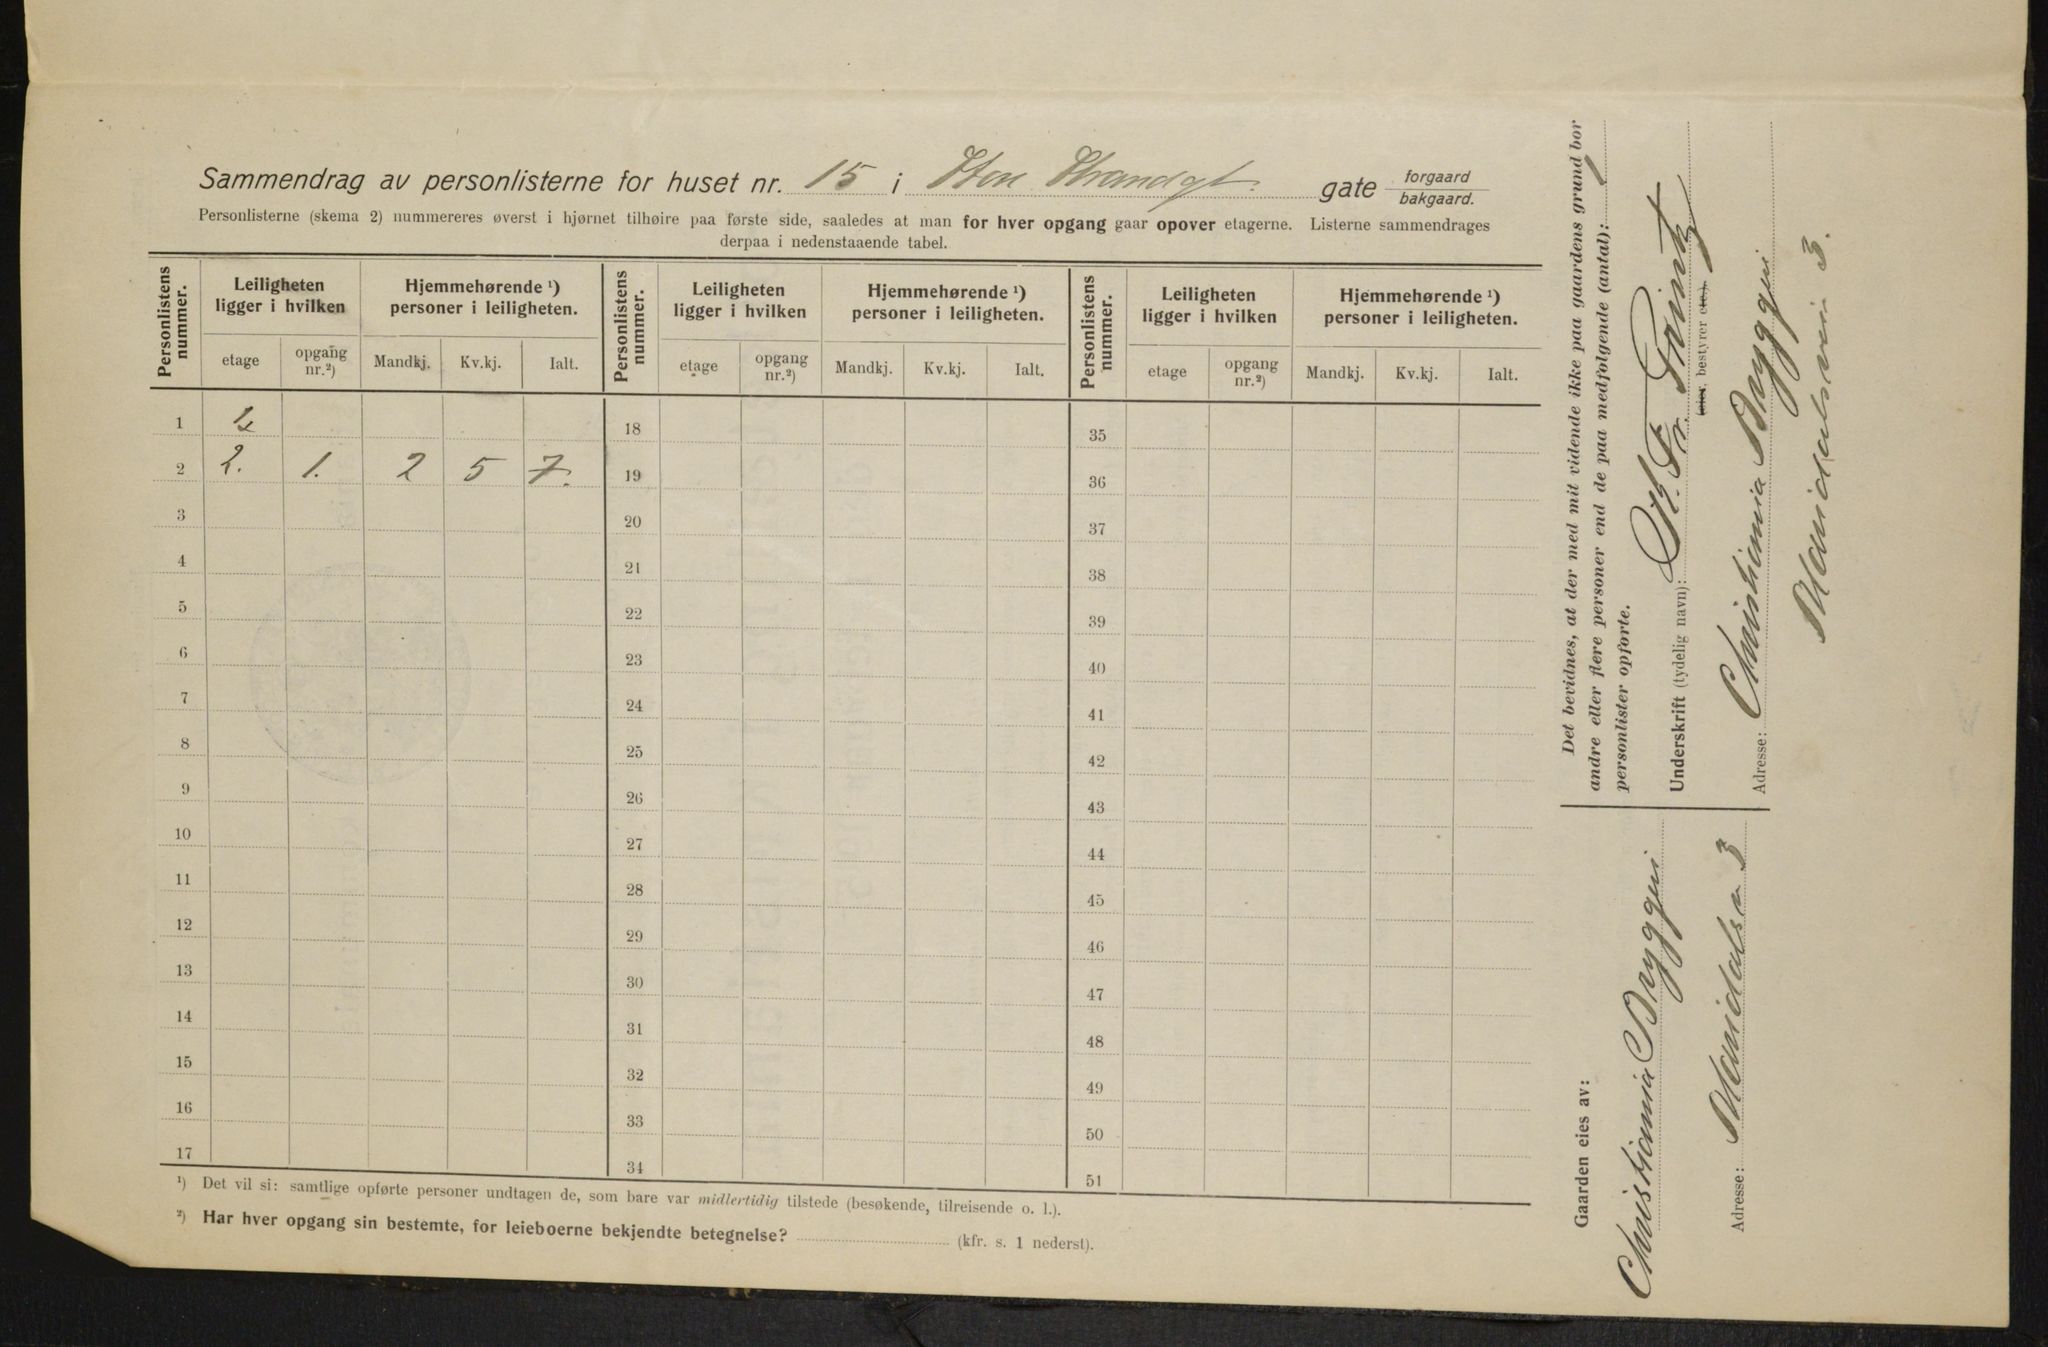 Sammendrag av personlisterne for huset nr. 15 i Store Strandgt. gate forgaard / bakgaard.
Personlisterne (skema 2) nummereres øverst i hjørnet tilhøire paa første side, saaledes at man for hver opgang gaar opover etagerne. Listerne sammendrages
derpaa i nedenstaaende tabel.
Personlistens nummer. Leiligheten ligger i hvilken Hjemmehørende ¹) personer i leiligheten. Personlistens nummer. Leiligheten ligger i hvilken Hjemmehørende ¹) personer i leiligheten. Personlistens nummer. Leiligheten ligger i hvilken Hjemmehørende ¹) personer i leiligheten.
etage opgang nr.²) Mandkj. Kv.kj. Ialt. etage opgang nr.²) Mandkj. Kv.kj. Ialt. etage opgang nr.²) Mandkj. Kv.kj. Ialt.
1 18 35
2 2. 1. 2 5 7. 19 36
3 20 37
4 21 38
5 22 39
6 23 40
7 24 41
8 25 42
9 26 43
10 27 44
11 28 45
12 29 46
13 30 47
14 31 48
15 32 49
16 33 50
17 34 51
¹) Det vil si: samtlige opførte personer undtagen de, som bare var midlertidig tilstede (besøkende, tilreisende o. l.).
²) Har hver opgang sin bestemte, for leieboerne bekjendte betegnelse? (kfr. s. 1 nederst).
Det bevidnes, at der med mit vidende ikke paa gaardens grund bor
andre eller flere personer end de paa medfølgende (antal): 1
personlister opførte.
Underskrift (tydelig navn):
(eier, bestyrer etc.)
Adresse: Christiania Byggeri
Maridalsvei 3.
Gaarden eies av:
Christiania Byggeri
Adresse: Maridalsv 3